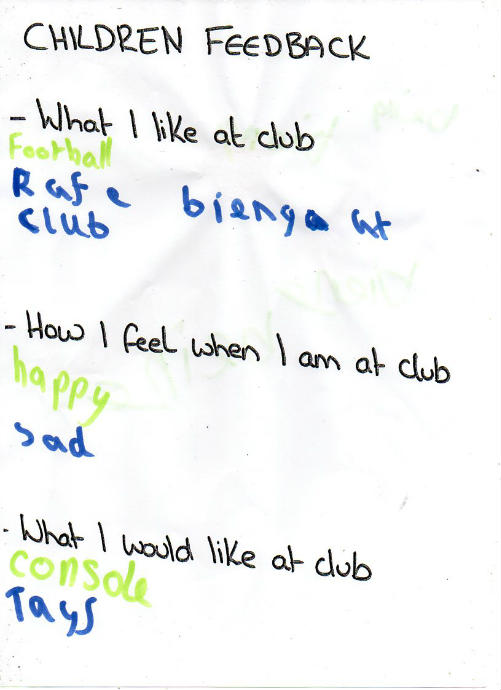 CHILDREN FEEDBACK
- What I like at club
Football
Rafe bieng at
club
- How I feel when I am at club
happy
sad
- What I would like at club
console
Tays